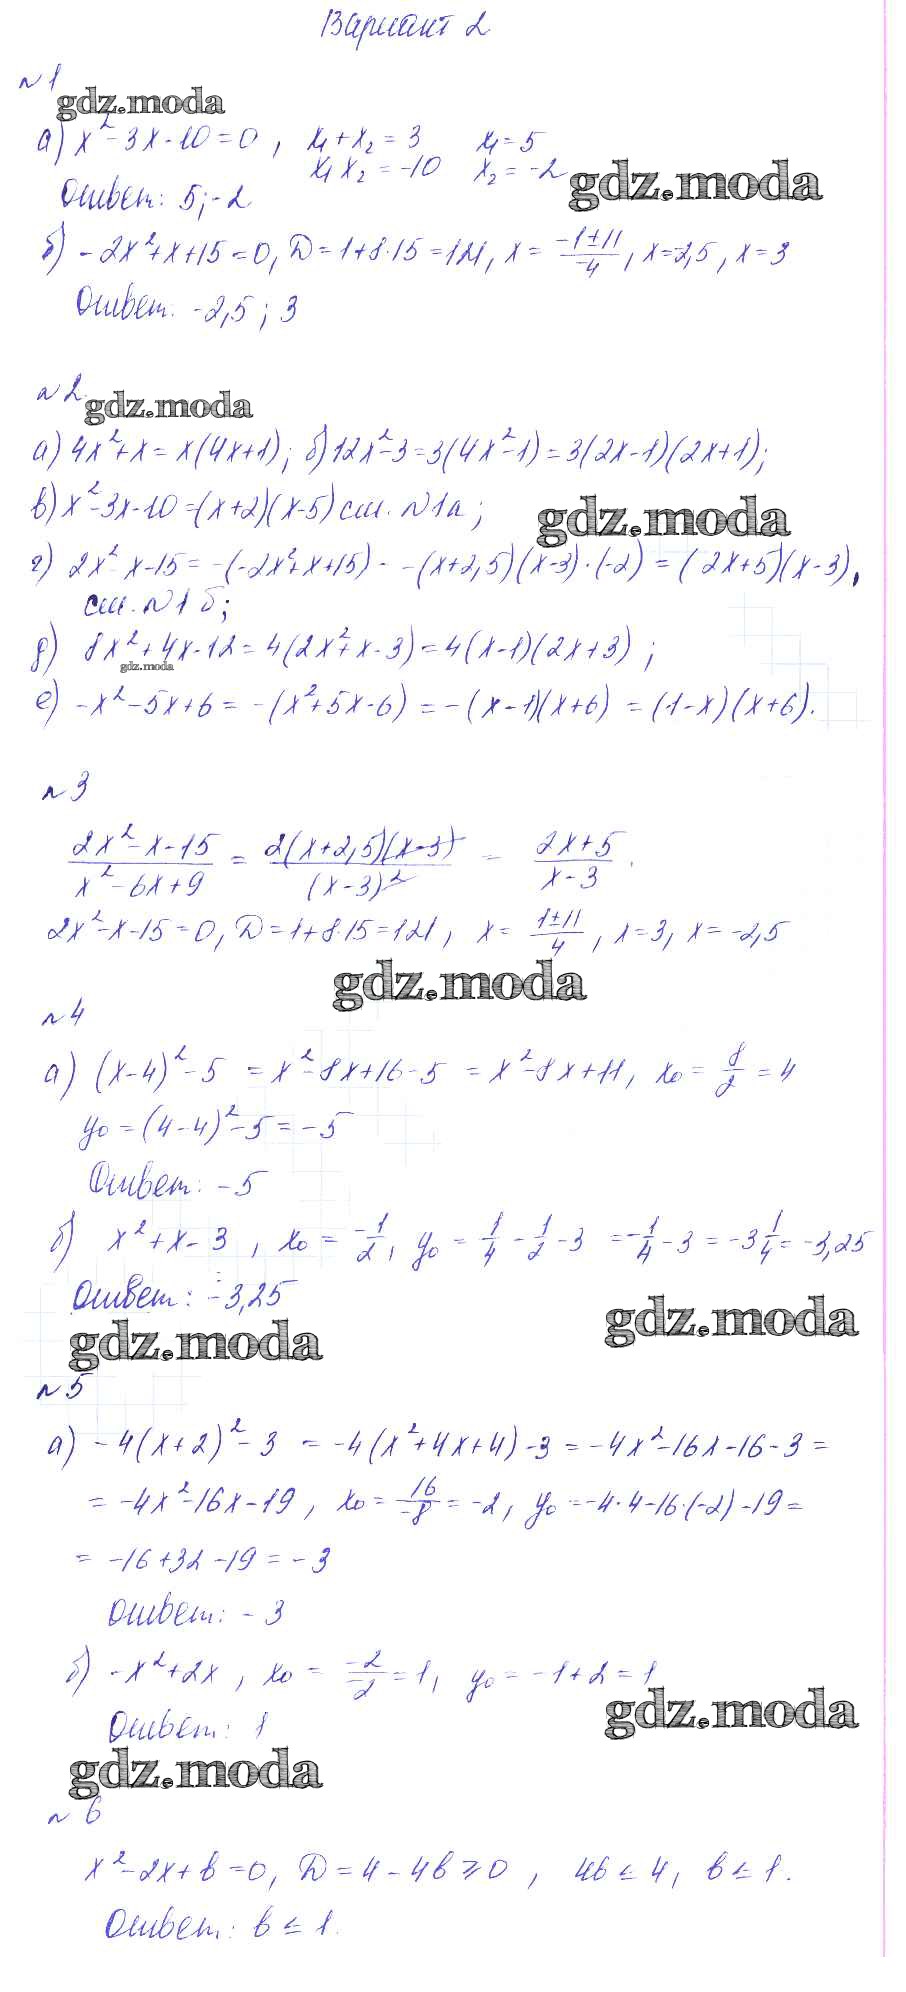 Вариант 2
№1
gdz.moda
а) x² - 3x - 10 = 0, x₁ + x₂ = 3 x₁ = 5
x₁ x₂ = -10 x₂ = -2
gdz.moda
Ответ: 5; -2
б) -2x² + x + 15 = 0, D = 1 + 8·15 = 121, x = (-1 ± 11)/(-4), x = -2,5, x = 3
Ответ: -2,5; 3
№2.
gdz.moda
а) 4x² + x = x(4x+1); б) 12x² - 3 = 3(4x² - 1) = 3(2x-1)(2x+1);
в) x² - 3x - 10 = (x+2)(x-5) см. №1а;
gdz.moda
г) 2x² - x - 15 = -(-2x² + x + 15) = -(x+2,5)(x-3)·(-2) = (2x+5)(x-3),
см. №1 б;
д) 8x² + 4x - 12 = 4(2x² + x - 3) = 4(x-1)(2x+3);
gdz.moda
е) -x² - 5x + 6 = -(x² + 5x - 6) = -(x-1)(x+6) = (1-x)(x+6).
№3
(2x² - x - 15)/(x² - 6x + 9) = 2(x+2,5)(x-3)/(x-3)² = (2x+5)/(x-3).
2x² - x - 15 = 0, D = 1 + 8·15 = 121, x = (1 ± 11)/4, x = 3, x = -2,5
gdz.moda
№4
а) (x-4)² - 5 = x² - 8x + 16 - 5 = x² - 8x + 11, x₀ = 8/2 = 4
y₀ = (4-4)² - 5 = -5
Ответ: -5
б) x² + x - 3, x₀ = -1/2, y₀ = 1/4 - 1/2 - 3 = -1/4 - 3 = -3 1/4 = -3,25
Ответ: -3,25
gdz.moda
gdz.moda
№5
а) -4(x+2)² - 3 = -4(x² + 4x + 4) - 3 = -4x² - 16x - 16 - 3 =
= -4x² - 16x - 19, x₀ = 16/-8 = -2, y₀ = -4·4 - 16·(-2) - 19 =
= -16 + 32 - 19 = -3
Ответ: -3
б) -x² + 2x, x₀ = -2/-2 = 1, y₀ = -1 + 2 = 1
gdz.moda
Ответ: 1
gdz.moda
№6
x² - 2x + b = 0, D = 4 - 4b ≥ 0, 4b ≤ 4, b ≤ 1.
Ответ: b ≤ 1.